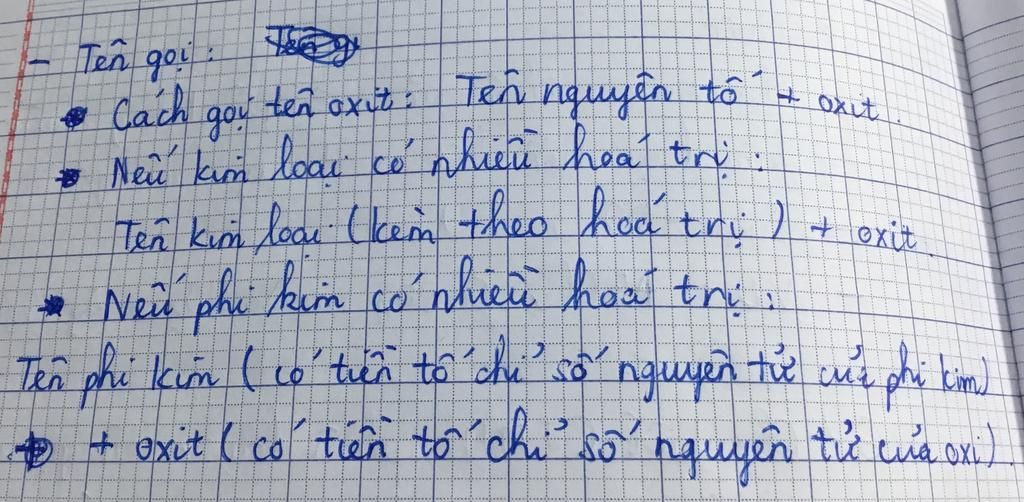 - Tên gọi:
Cách gọi tên oxit: Tên nguyên tố + oxit.
Nếu kim loại có nhiều hoá trị:
Tên kim loại (kèm theo hoá trị) + oxit.
Nếu phi kim có nhiều hoá trị:
Tên phi kim (có tiền tố chỉ số nguyên tử của phi kim)
+ oxit (có tiền tố chỉ số nguyên tử của oxi).